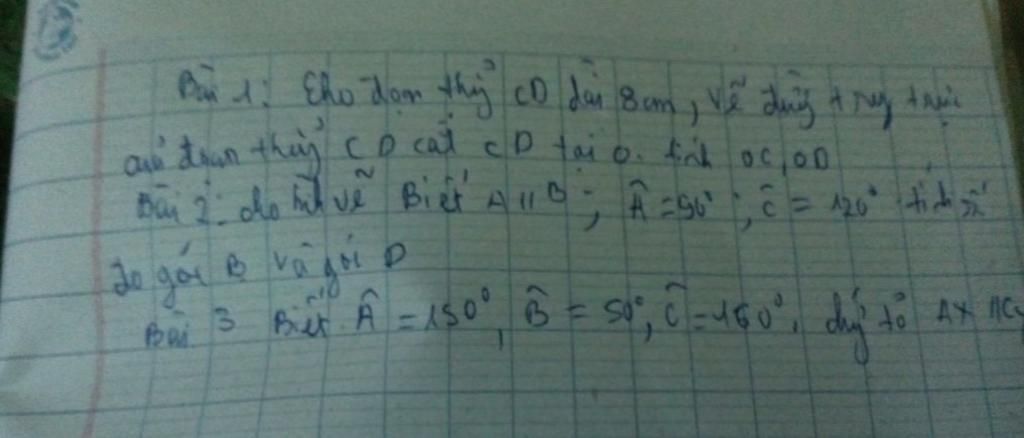 Bài 1: Cho đoạn thẳng CD dài 8cm, vẽ đường trung trực
của đoạn thẳng CD cắt CD tại O. tính OC, OD
Bài 2: cho hình vẽ Biết A // B ; Â = 90° ; Ĉ = 120° tính số
đo góc B và góc D
Bài 3 Biết Â = 150°, B̂ = 50°, Ĉ = 160°, chứng tỏ Ax //Cy